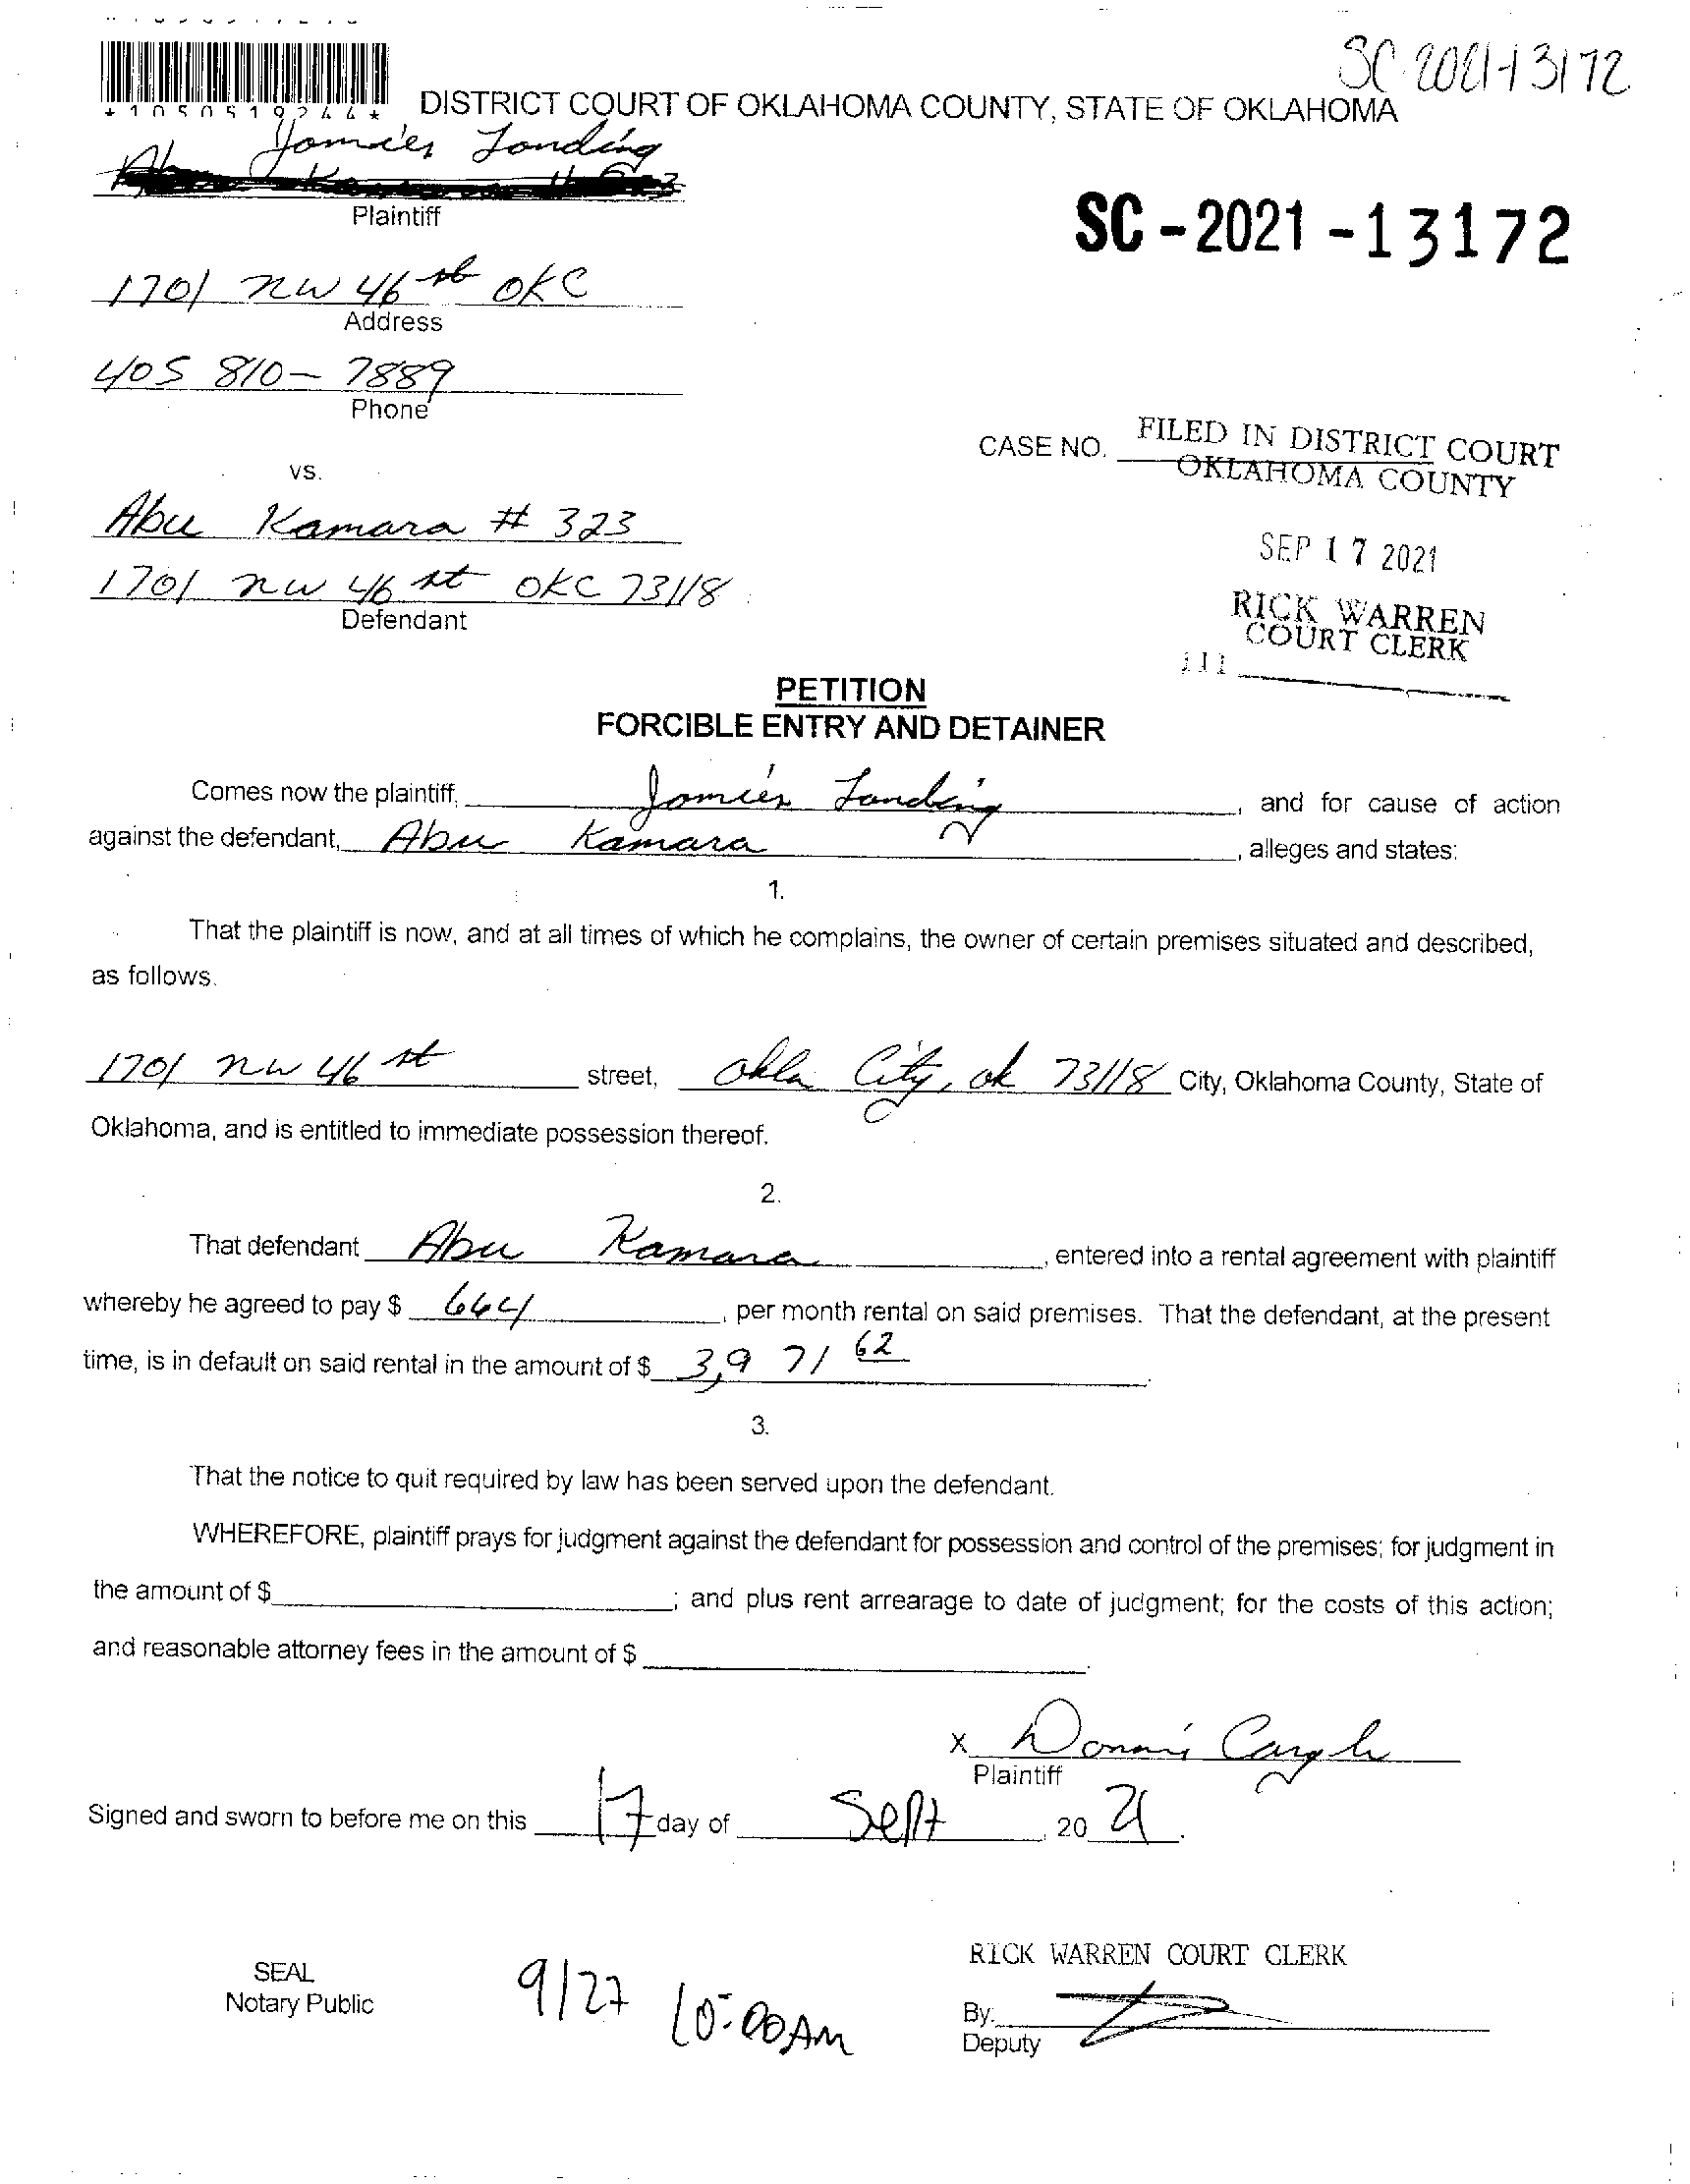 SC-2021-13172
*1050519244*
DISTRICT COURT OF OKLAHOMA COUNTY, STATE OF OKLAHOMA
Landing
Plaintiff
SC-2021-13172
1701 NW 46 st OKC
Address
405 810-7889
Phone
CASE NO.
FILED IN DISTRICT COURT
OKLAHOMA COUNTY
vs.
Abu Kamara # 323
SEP 17 2021
1701 NW 46 st OKC 73118
Defendant
RICK WARREN
COURT CLERK
111
PETITION
FORCIBLE ENTRY AND DETAINER
Comes now the plaintiff, Landing, and for cause of action
against the defendant, Abu Kamara, alleges and states:
1.
That the plaintiff is now, and at all times of which he complains, the owner of certain premises situated and described,
as follows.
1701 NW 46 st street, Okla City, ok 73118 City, Oklahoma County, State of
Oklahoma, and is entitled to immediate possession thereof.
2.
That defendant Abu Kamara, entered into a rental agreement with plaintiff
whereby he agreed to pay $ 664, per month rental on said premises. That the defendant, at the present
time, is in default on said rental in the amount of $ 3,971 62.
3.
That the notice to quit required by law has been served upon the defendant.
WHEREFORE, plaintiff prays for judgment against the defendant for possession and control of the premises; for judgment in
the amount of $ ; and plus rent arrearage to date of judgment; for the costs of this action;
and reasonable attorney fees in the amount of $ .
x
Plaintiff
Signed and sworn to before me on this 17 day of Sept, 20 21.
SEAL
Notary Public
9/27 10:00AM
RICK WARREN COURT CLERK
By:
Deputy